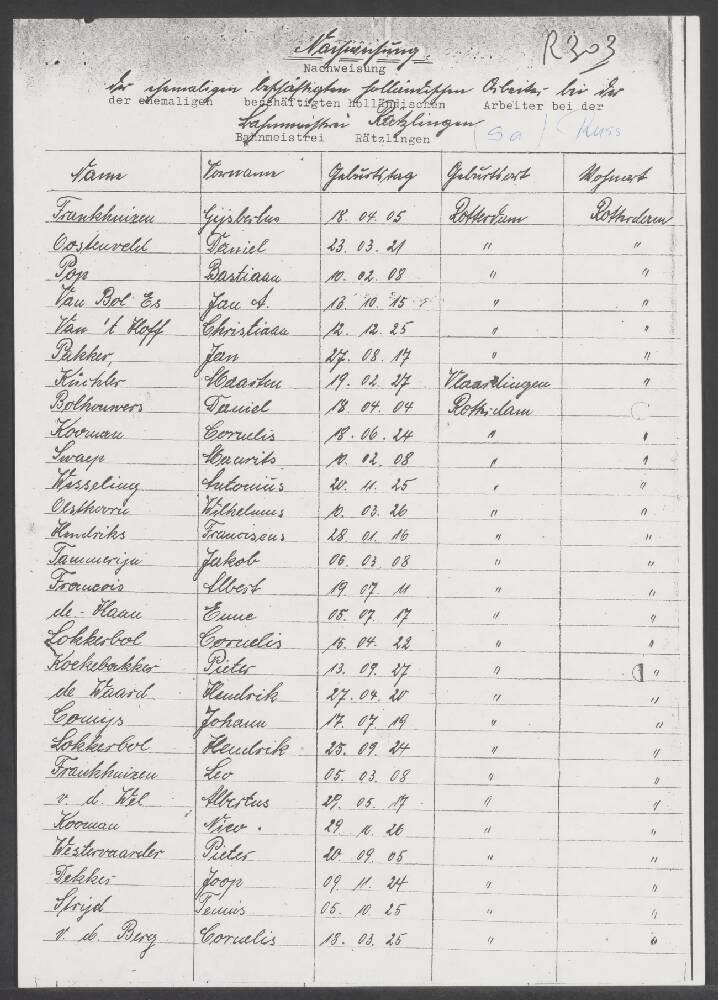 Nachweisung
R303
Nachweisung
der ehemaligen beschäftigten holländischen Arbeiter bei der
der ehemaligen beschäftigten holländischen Arbeiter bei der
Bahnmeistrei Rätzlingen
(Sa) Russ
Bahnmeistrei Rätzlingen
Name Vorname Geburtstag Geburtsort Wohnort
Frankhuizen Gijsbertus 18. 04. 05 Rotterdam Rotterdam
Oostenveld Daniel 23. 03. 21 " "
Pop Bastiaan 10. 02. 08 " "
Van Bol Es Jan A. 13. 10. 15 " "
Van 't Hoff Christiaan 12. 12. 25 " "
Pakker, Jan 27. 08. 17 " "
Küchler Maarten 19. 02. 27 Vlaardingen "
Bolhouwers Daniel 18. 04. 04 Rotterdam
Kooman Cornelis 18. 06. 24 " "
Swaep Maurits 10. 02. 08 " "
Wesseling Antonius 20. 11. 25 " "
Olsthoorn Wilhelmus 10. 03. 26 " "
Hendriks Franciscus 28. 01. 16 " "
Tammerijn Jakob 06. 03. 08 " "
Francois Albert 19. 07. 11 " "
de-Haan Enne 05. 07. 17 " "
Lokkerbol Cornelis 15. 04. 22 " "
Koekebakker Pieter 13. 09. 27 " "
de Waard Hendrik 27. 04. 20 " "
Comijs Johann 17. 07. 19 " "
Lokkerbol Hendrik 25. 09. 24 " "
Frankhuizen Leo 05. 03. 08 " "
v. d. Wel Albertus 29. 05. 17 " "
Kooman Nico. 29. 10. 26 " "
Westervaarder Pieter 20. 09. 05 " "
Dekker Joop 09. 11. 24 " "
Strijd Teunis 05. 10. 25 " "
v. d. Berg Cornelis 18. 03. 25 " "